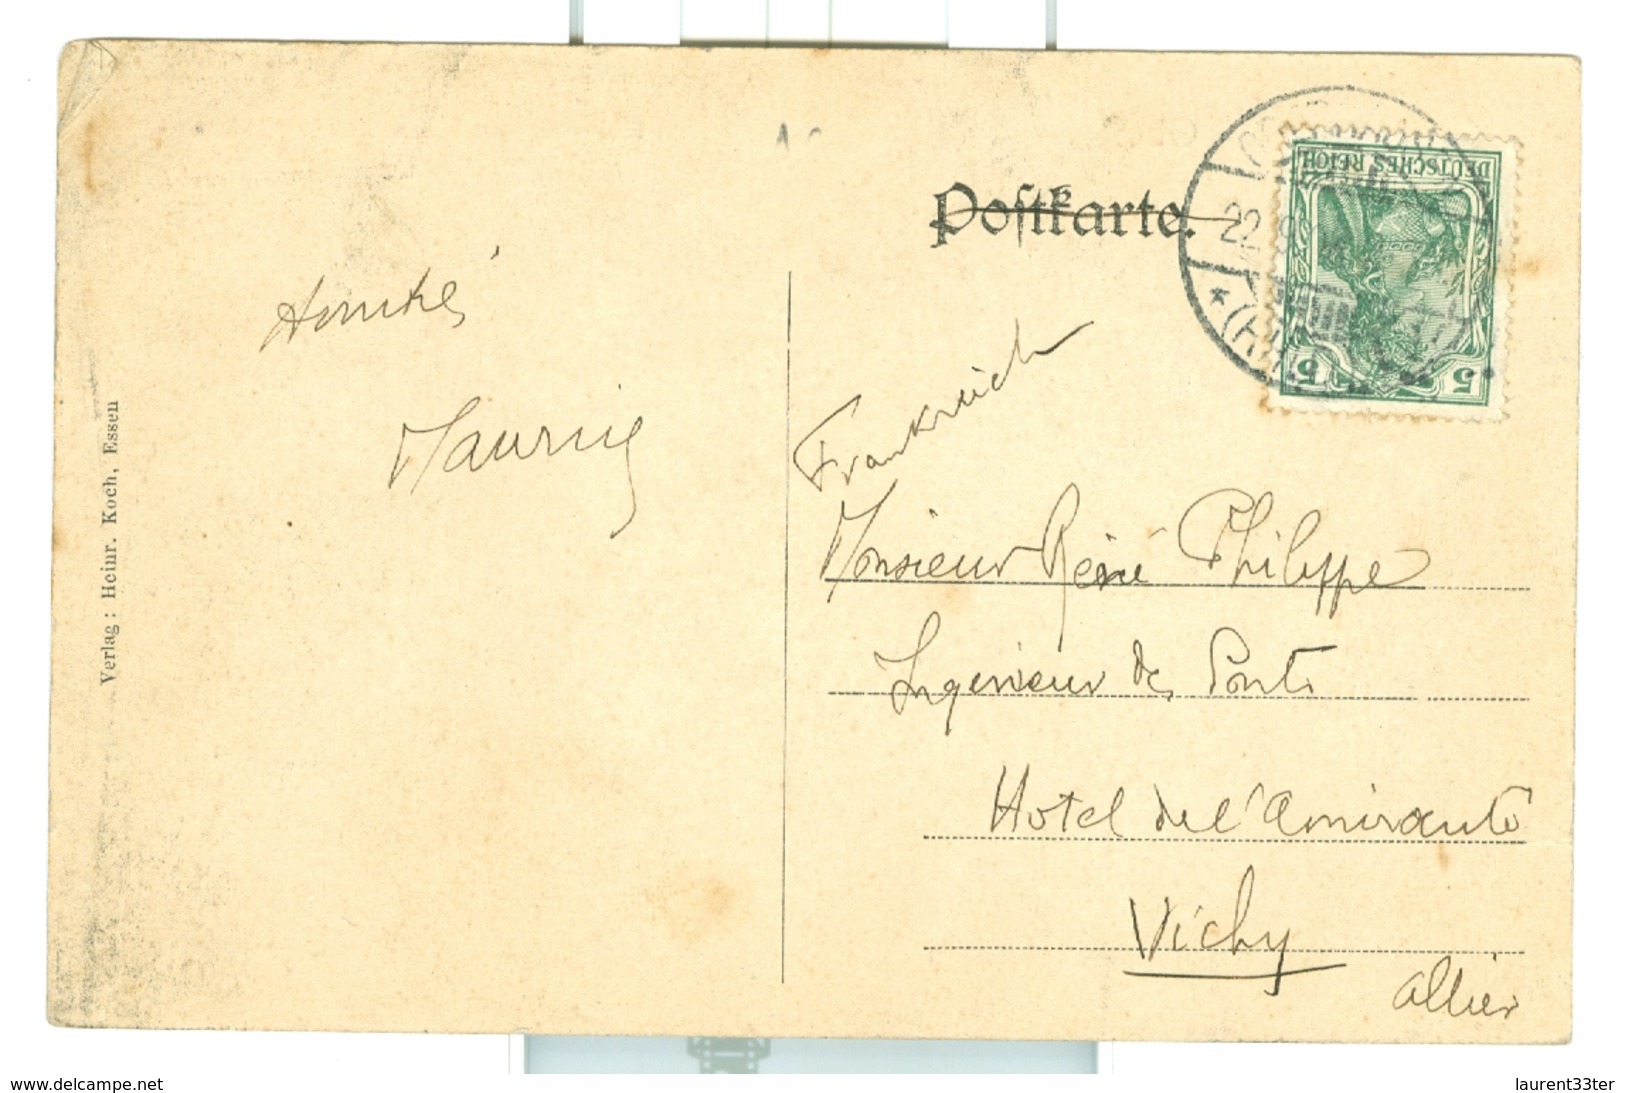 Postkarte.
DEUTSCHES REICH
5 5
22
*(H
Amitiés
Maurice
Verlag: Heinr. Koch, Essen
Frankreich
Monsieur René Philippe
Ingenieur des Ponts
Hotel de l'amirauté
Vichy
allier
www.delcampe.net
laurent33ter